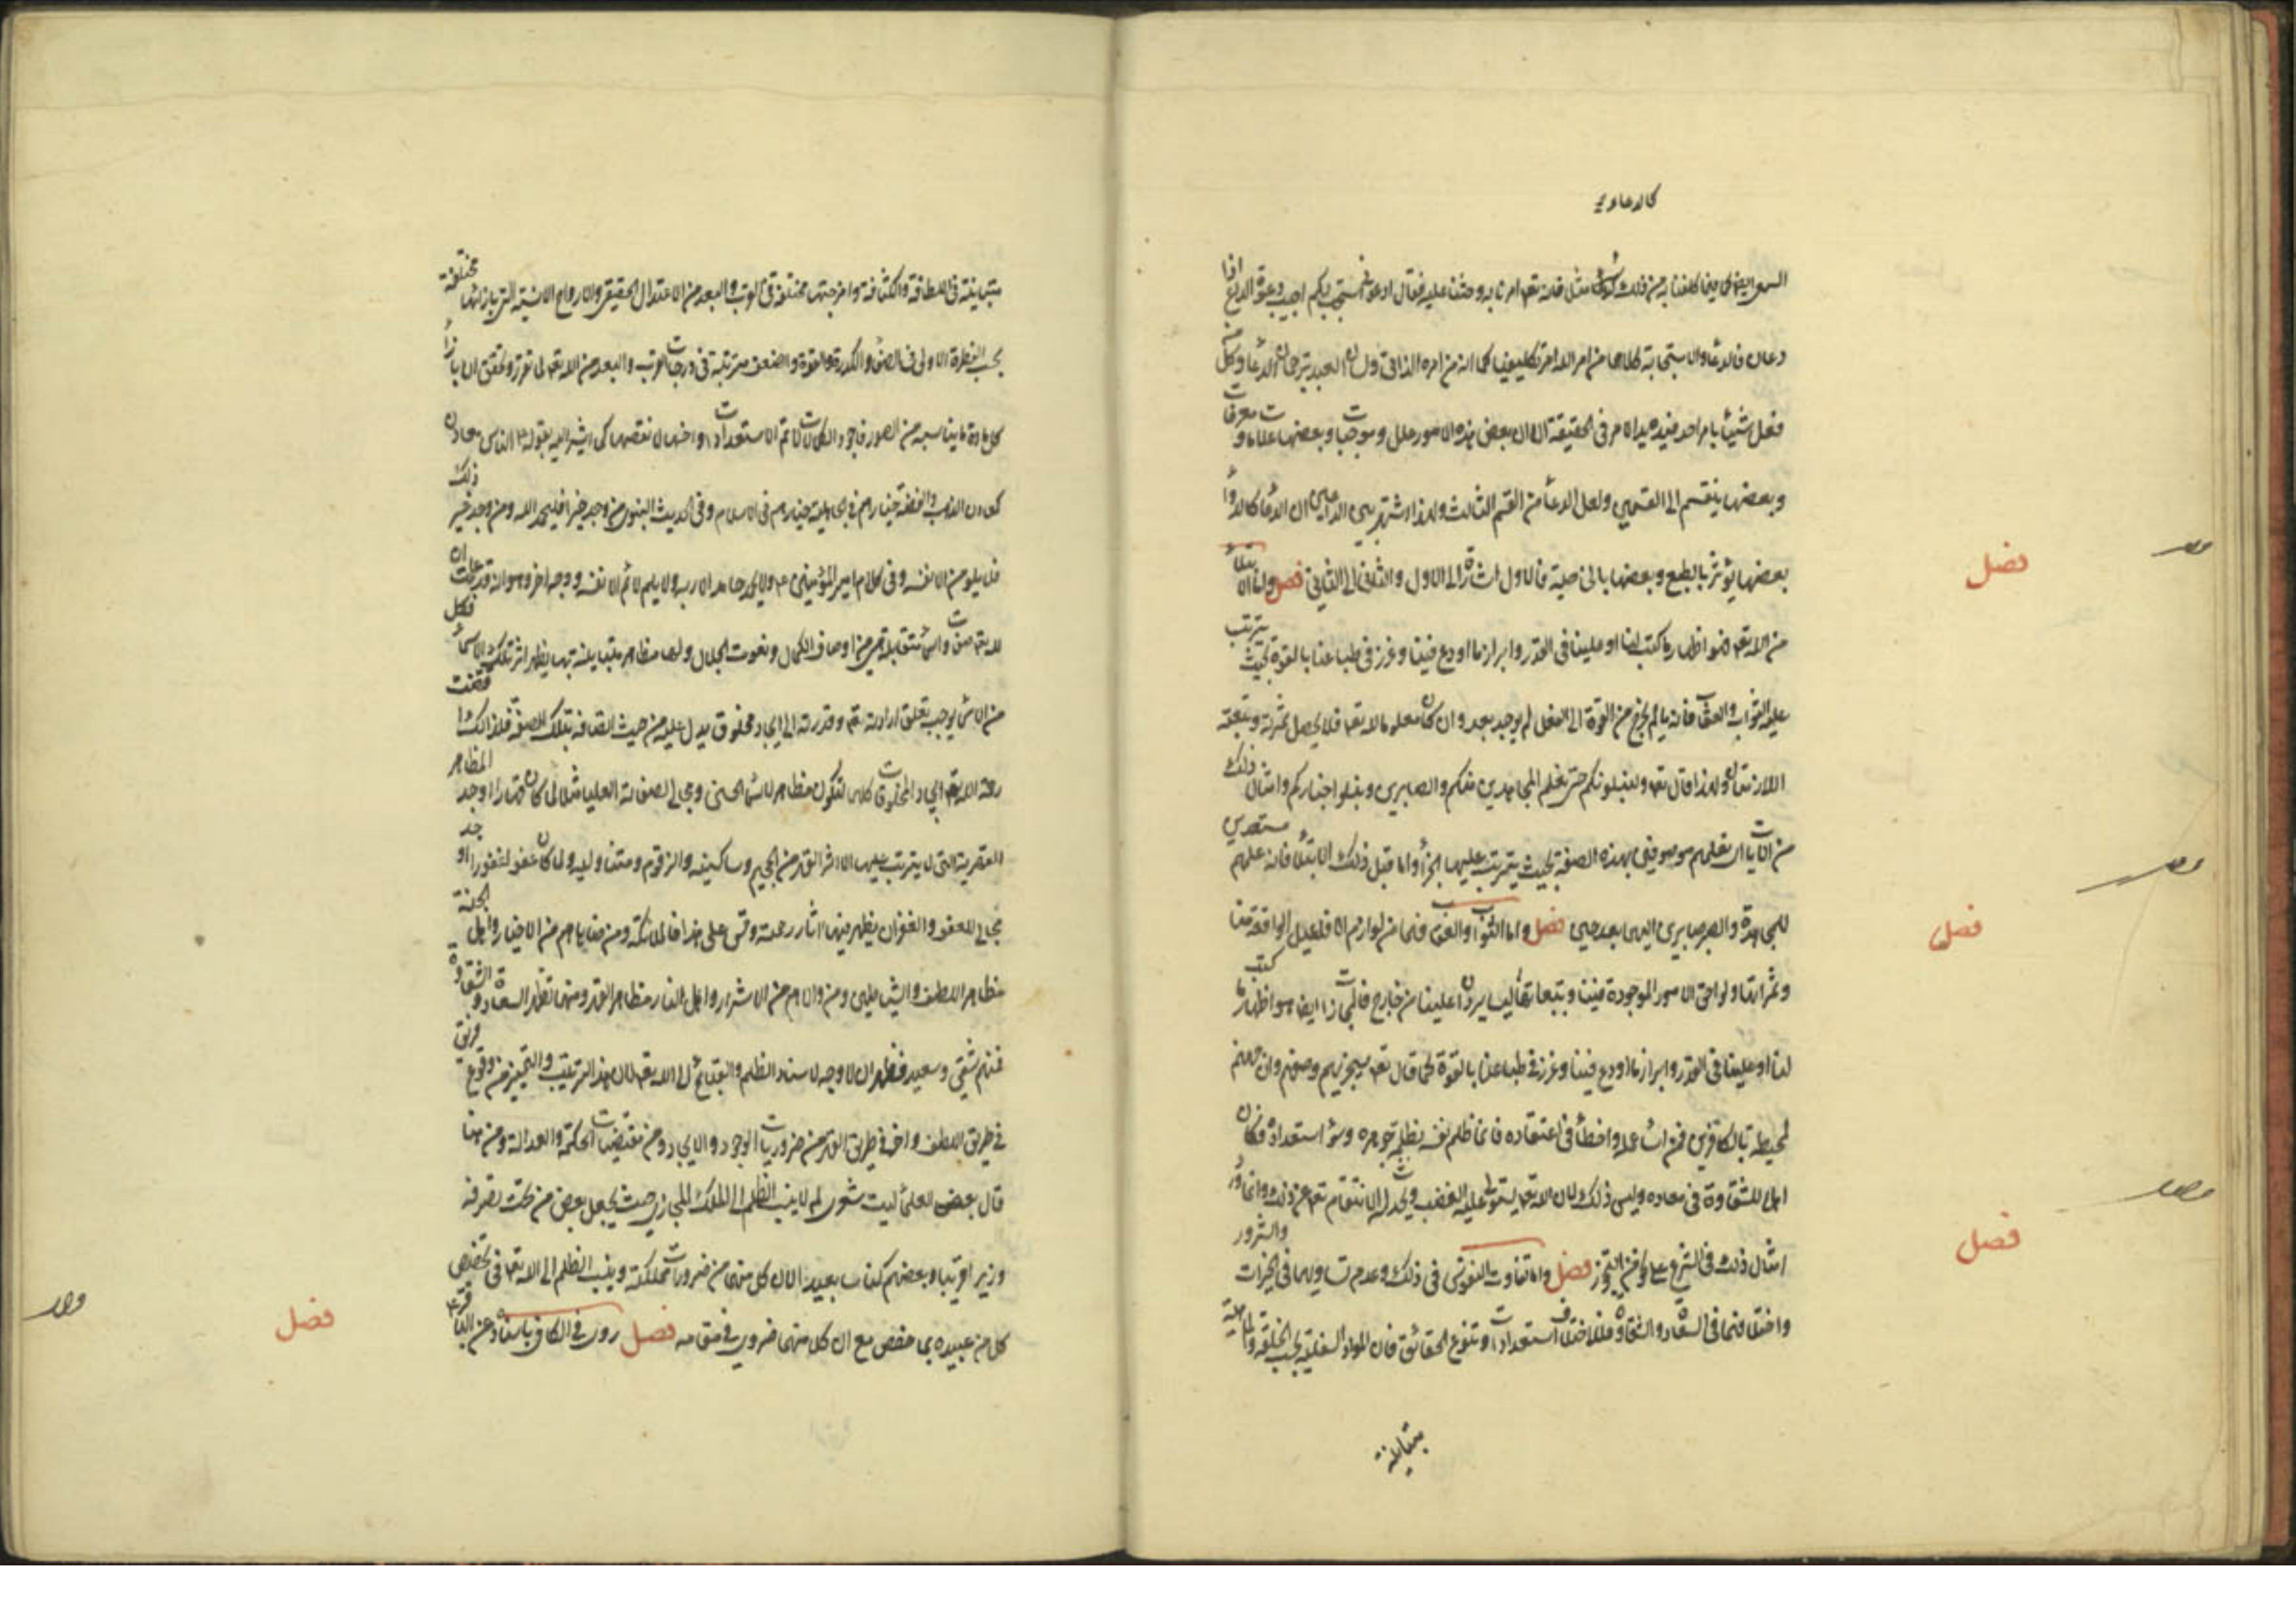 كالدعاء
السعي ايضا فيما كلفنا به من ذلك مثل قوله تعه امرنا به وحثنا عليه فقال ادعوني استجب لكم اجيب دعوة الداع اذا
دعان فالدعاء والاستجابة كلاهما من امر الله امر تكليفيا كما انه من امره الذاتي ولسان العبد ترجمان الدعاء وكل
فعل شيئا بامر احد فيده يد الامر في الحقيقة الا ان بعض هذه الامور علل وموجبات وبعضها علامات ومعرفات
وبعضها ينقسم الى القسمين ولعل الدعاء من القسم الثالث ولهذا اشتهر بين الداعين ان الدعاء كالدواء
بعضها يؤثر بالطبع وبعضها بالخاصية فالاول اشارة الى الاول والثاني الى الثاني فصل واما الابتلاء
من الله تعه فهو اظهار ما كتب لنا او علينا في القدر وابراز ما اودع فينا وغرز في طباعنا بالقوة بحيث يترتب
عليه الثواب والعقاب فانه ما لم يخرج من القوة الى الفعل لم يوجد بعد وان كان معلوما لله تعه فلا يحصل ثمرته وتبعته
اللازمتان ولهذا قال تعه ولنبلونكم حتى نعلم المجاهدين منكم والصابرين ونبلو اخباركم وامثال ذلك
من الايات اي نعلمهم موصوفين بهذه الصفة بحيث يترتب عليها الجزاء واما قبل ذلك الابتلاء فانه علمهم مستعدين
للمجاهدة والصبر صابرين اليها بعد حين فصل واما الثواب والعقاب فهما من لوازم الافاعيل الواقعة منا
وثمراتها ولواحق الامور الموجودة فينا وتبعاتها ليس يردان علينا من خارج فالمجازاة ايضا هو اظهار ما كتب
لنا او علينا في القدر وابراز ما اودع فينا وغرز في طباعنا بالقوة كما قال تعه سيجزيهم وصفهم وان جهنم
لمحيطة بالكافرين فمن اساء عمله واخطأ في اعتقاده فانما ظلم نفسه بظلمة جوهره وسوء استعداده فكان
اهلا للشقاوة في معاده وليس ذلك لان الله تعه يستولي عليه الغضب ويحدث له الانتقام تعه عن ذلك وانما ورد
امثال ذلك في الشرع على ضرب من التجوز فصل واما تفاوت النفوس في ذلك وعدم تساويها في الخيرات والشرور
واختلافهما في السعادة والشقاوة فلاختلاف استعدادات وتنوع الحقائق فان المواد السفلية بحسب الخلقة والماهية
متباينة
متباينة في اللطافة والكثافة وامزجتها مختلفة في القرب والبعد من الاعتدال الحقيقي والارواح الانسية التي بازائها مختلفة
بحسب الفطرة الاولى في الصفاء والكدورة والقوة والضعف مترتبة في درجات القرب والبعد من الله تعه لما تقرر وتحقق ان بازاء
كل مادة ما يناسبه من الصور فاجود الكمالات لاتم الاستعدادات واخسها لانقصها كما اشير اليه بقوله الناس معادن
كمعادن الذهب والفضة خيارهم في الجاهلية خيارهم في الاسلام وفي الحديث النبوي من وجد خيرا فليحمد الله ومن وجد غير ذلك
فلا يلومن الا نفسه وفي كلام امير المؤمنين ولا يحمد حامد الا ربه ولا يلم لائم الا نفسه ووجه اخر وهو انه قد علمت ان
لله تعه صفات واسماء متقابلة هي من اوصاف الكمال ونعوت الجلال ولها مظاهر متباينة بها يظهر اثر تلك الاسماء فكل
من الاسماء يوجب تعلق ارادته تعه وقدرته الى ايجاد مخلوق يدل عليه من حيث اتصافه بتلك الصفة فلذلك اقتضت
رحمة الله تعه ايجاد المخلوقات كلها لتكون مظاهر لاسمائه الحسنى ومجالي لصفاته العليا مثلا لما كان قهارا اوجد المظاهر
القهرية التي لا يترتب عليها الا اثر القهر من الجحيم وساكنيه والزقوم ومتناوليه ولما كان عفوا غفورا اوجد
مجالي للعفو والغفران يظهر فيها اثار رحمته وقس على هذا فالملائكة ومن ضاهاهم من الاخيار واهل الجنة
مظاهر اللطف والشياطين ومن والاهم من الاشرار واهل النار مظاهر القهر ومنهما تظهر السعادة والشقاوة
فمنهم شقي وسعيد فظهر ان لا وجه لاسناد الظلم والقبائح الى الله تعه لان هذا الترتيب والتمييز من وقوع فريق
في طريق اللطف واخر في طريق القهر من ضروريات الوجود والايجاد ومن مقتضيات الحكمة والعدالة ومن هنا
قال بعض العلماء ليت شعري لم لا ينسب الظلم الى الملك المجازي حيث يجعل بعض من تحت تصرفه
وزيرا قريبا وبعضهم كناسا بعيدا لان كل منهما من ضروريات مملكته وينسب الظلم الى الله تعه في تخصيص
كل من عبيده بما خصص مع ان كلا منهما ضروري في مقامه فصل روى في الكافي باسناده عن الباقر ع
فصل
فصل
فصل
فصل